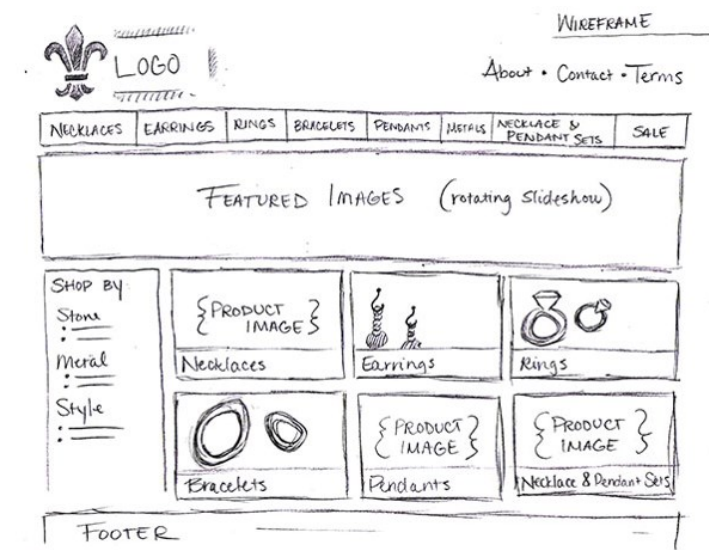 WIREFRAME
LOGO
About • Contact • Terms
NECKLACES EARRINGS RINGS BRACELETS PENDANTS METALS NECKLACE & PENDANT SETS SALE
FEATURED IMAGES (rotating slideshow)
SHOP BY
Stone
Metal
Style
{PRODUCT IMAGE}
Necklaces
Earrings
Rings
Bracelets
{PRODUCT IMAGE}
Pendants
{PRODUCT IMAGE}
Necklace & Pendant Sets
FOOTER